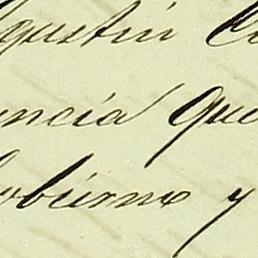 gustin C
uncia que
obierno y